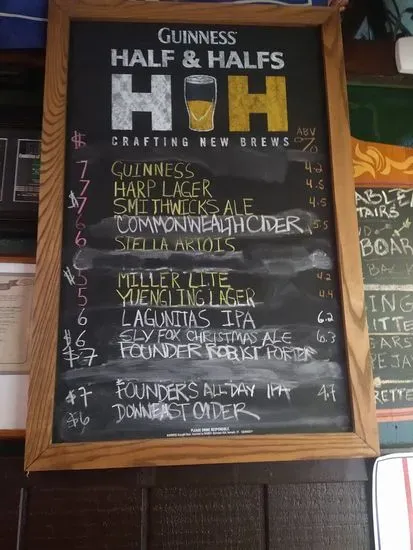 GUINNESS
HALF & HALFS
H H
CRAFTING NEW BREWS
$ ABV %
7 GUINNESS 4.2
7 HARP LAGER 4.5
$7 SMITHWICKS ALE 4.5
6 COMMONWEALTH CIDER 5.5
6 STELLA ARTOIS
$5 MILLER LITE 4.2
5 YUENGLING LAGER 4.4
6 LAGUNITAS IPA 6.2
$6 SLY FOX CHRISTMAS ALE 6.3
$7 FOUNDER ROBUST PORTER
$7 FOUNDERS ALL DAY IPA 4.7
$6 DOWNEAST CIDER
PLEASE DRINK RESPONSIBLY.
ABLE
TAIRS
BOAR